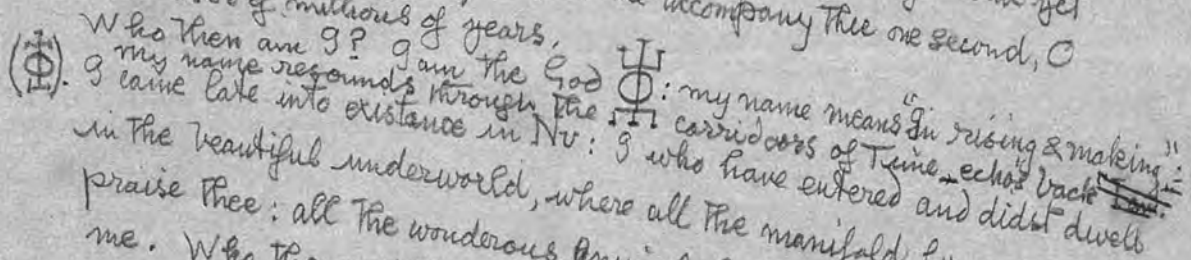 of millions of years, accompany Thee one second, O
Who then am I? I am the God : my name means "In rising & making":
my name resounds through the corridoors of Time_echos back
I came late into existance in Nv: I who have entered and didst dwell
in the beautiful underworld, where all the manifold
praise Thee: all the wonderous
me. Who